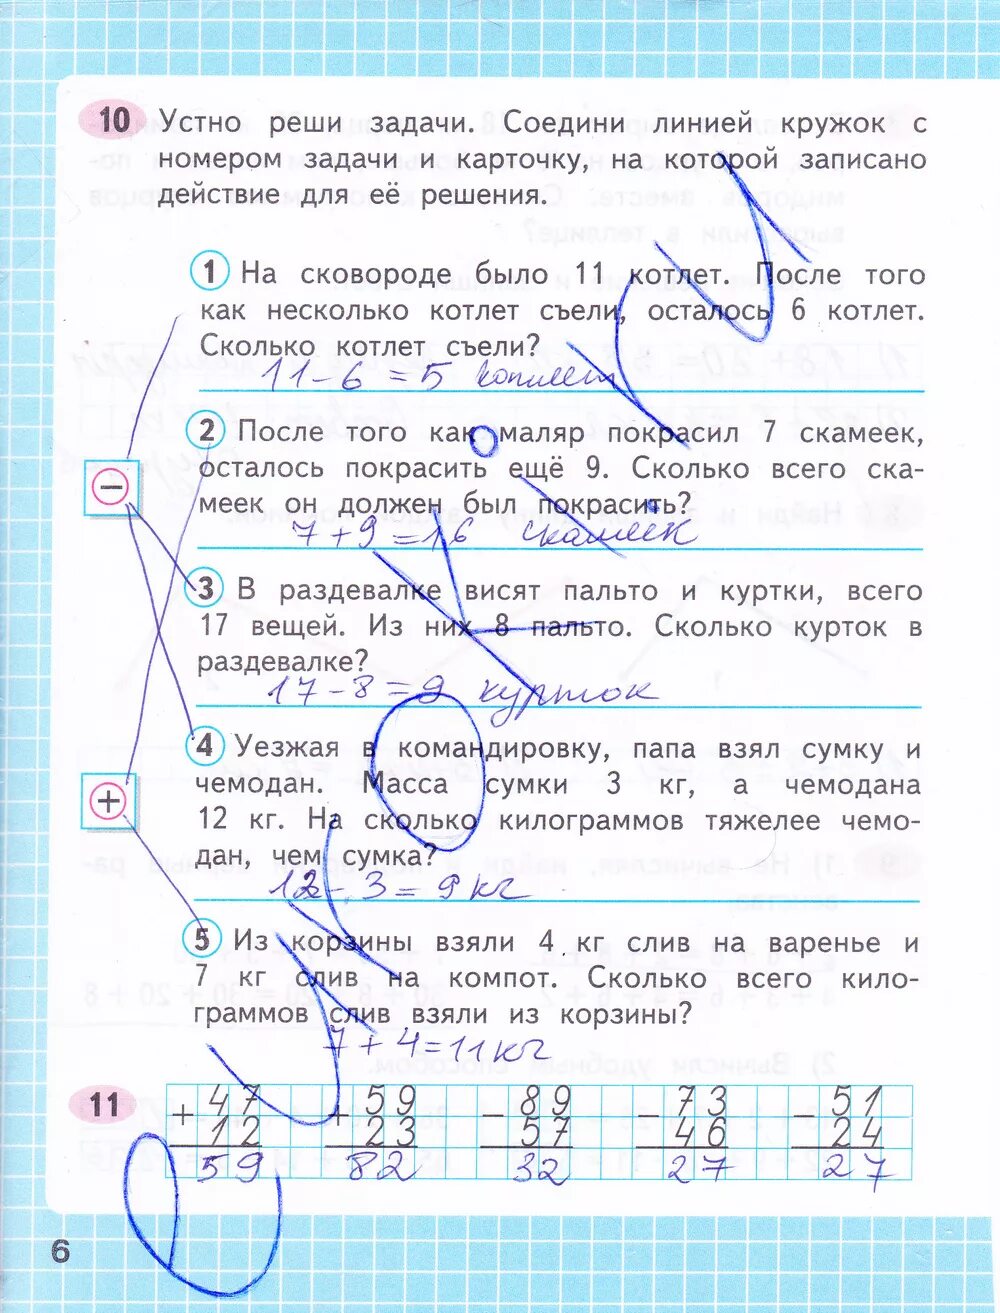 10 Устно реши задачи. Соедини линией кружок с
номером задачи и карточку, на которой записано
действие для её решения.
1 На сковороде было 11 котлет. После того
как несколько котлет съели, осталось 6 котлет.
Сколько котлет съели?
11-6 = 5 котлет
2 После того как маляр покрасил 7 скамеек,
осталось покрасить ещё 9. Сколько всего ска-
меек он должен был покрасить?
7+9=16 скамеек
−
3 В раздевалке висят пальто и куртки, всего
17 вещей. Из них 8 пальто. Сколько курток в
раздевалке?
17-8=9 курток
4 Уезжая в командировку, папа взял сумку и
чемодан. Масса сумки 3 кг, а чемодана
12 кг. На сколько килограммов тяжелее чемо-
дан, чем сумка?
12-3=9 кг
+
5 Из корзины взяли 4 кг слив на варенье и
7 кг слив на компот. Сколько всего кило-
граммов слив взяли из корзины?
7+4=11 кг
11 + 47 + 59 − 89 − 73 − 51
12 23 57 46 24
59 82 32 27 27
6